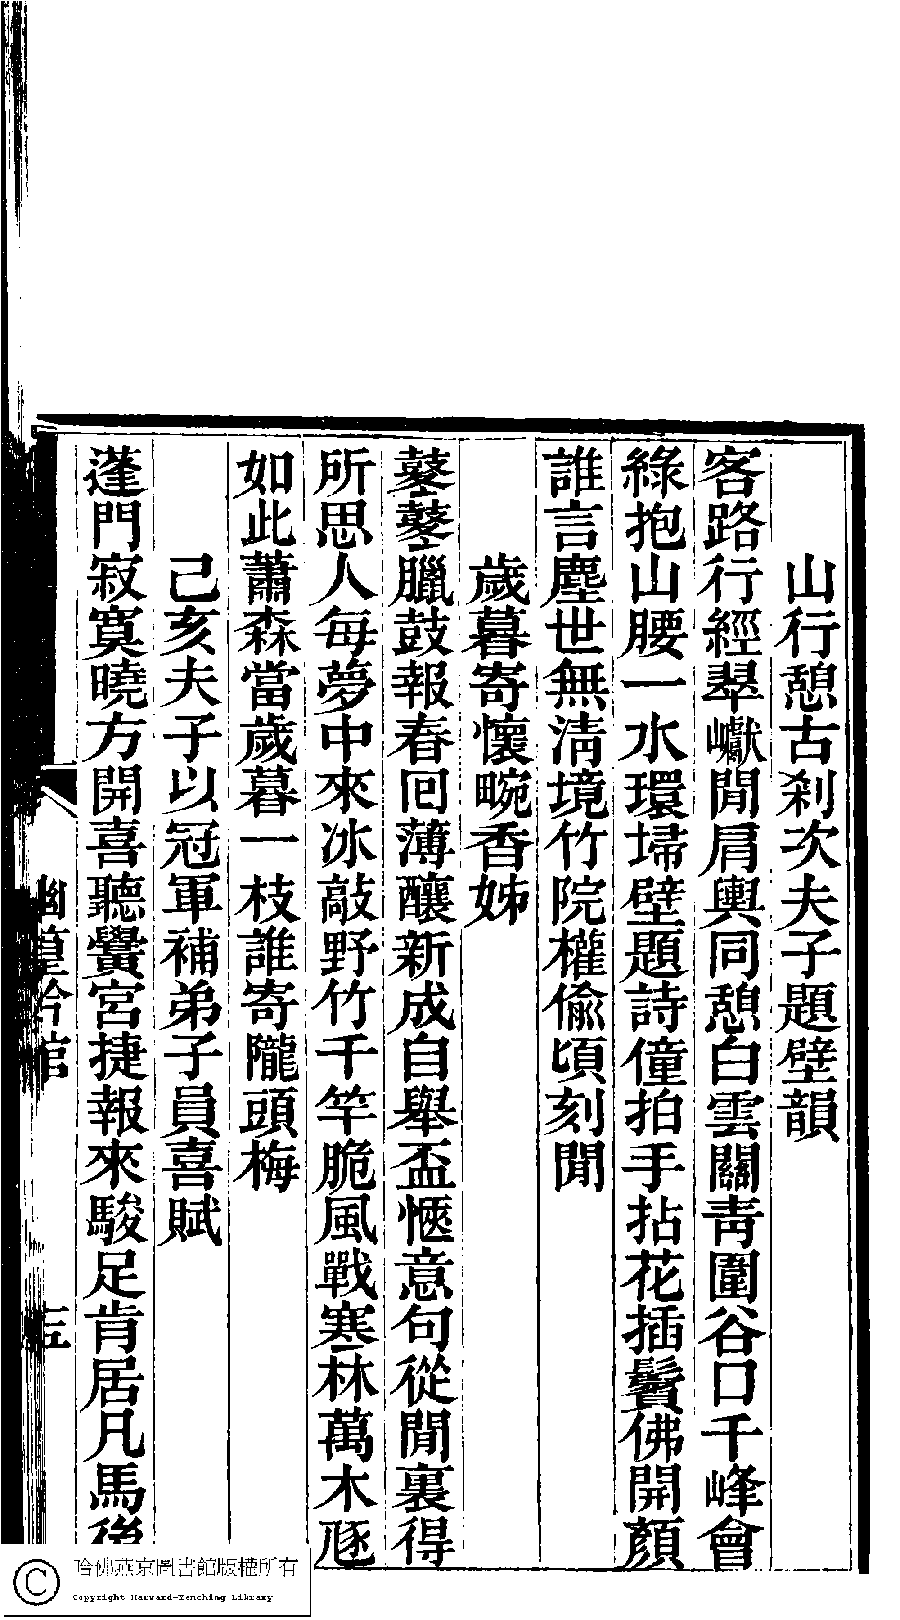 山行憩古刹次夫子題壁韻
客路行經翠巘閒肩輿同憩白雲關青圍谷口千峰會
綠抱山腰一水環埽壁題詩僮拍手拈花插鬢佛開顏
誰言塵世無清境竹院權偷頃刻閒
歲暮寄懷畹香姊
鼕鼕臘鼓報春回薄釀新成自舉盃愜意句從閒裏得
所思人每夢中來冰敲野竹千竿脆風戰寒林萬木豗
如此蕭森當歲暮一枝誰寄隴頭梅
己亥夫子以冠軍補弟子員喜賦
蓬門寂寞曉方開喜聽黌宮捷報來駿足肯居凡馬後
幽篁吟館
哈佛燕京圖書館版權所有
Copyright Harvard-Yenching Library